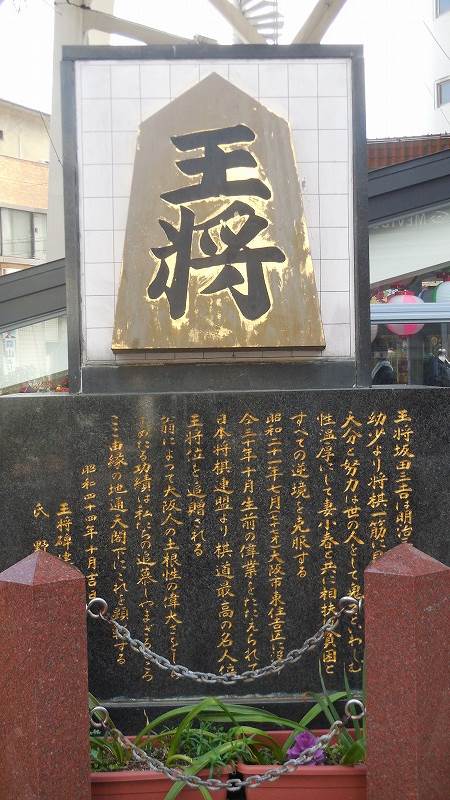 王将
王将坂田三吉は明治
幼少より将棋一筋に
大分と努力は世の人をして鬼
性温厚にして妻小春と共に相扶け貧困と
すべての逆境を克服する
昭和二十一年七月 大阪市東住吉区に没
今三十年十月生前の偉業をたたえられて
日本将棋連盟より棋道最高の名人位
王将位を追贈される
翁によって大阪人の土根性の偉大
めたる功績は私たちの追慕しやまざるところ
ここ由縁の地通天閣下にこれを顕 する
昭和四十四年十月吉日
王将碑
氏 野